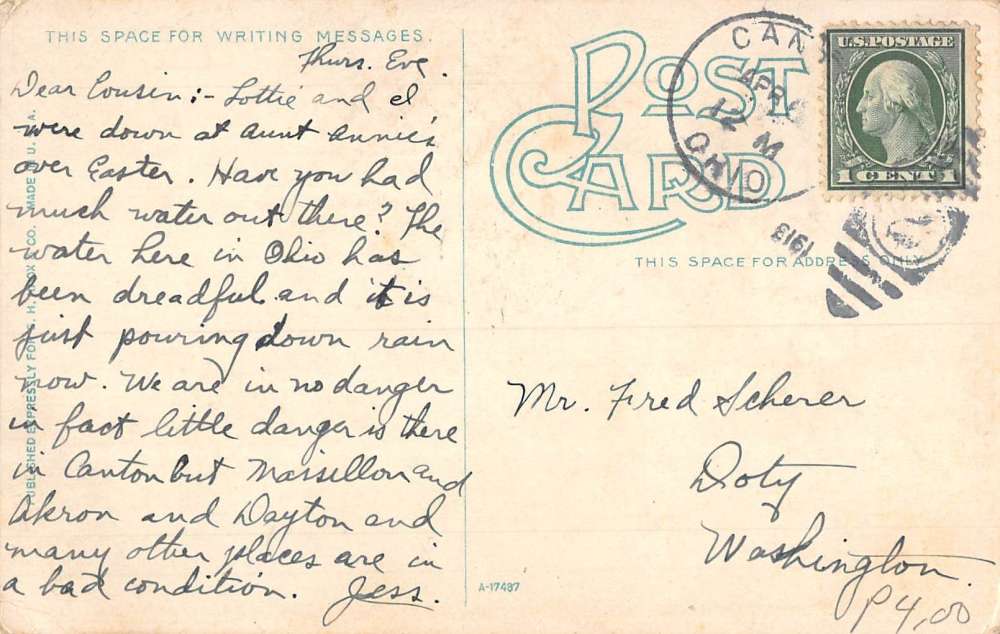 THIS SPACE FOR WRITING MESSAGES.
Thurs. Eve.
Dear Cousin:- Lottie and I
were down at Aunt Annie's
over Easter. Have you had
much water out there? The
water here in Ohio has
been dreadful and it is
just pouring down rain
now. We are in no danger
in fact little danger is there
in Canton but Massillon and
Akron and Dayton and
many other places are in
a bad condition. Jess.
PUBLISHED EXPRESSLY FOR H. CO. MADE IN U. S. A.
POST
CARD
CAN
APR
12 M
OHIO
1913
U.S. POSTAGE
1 CENT 1
THIS SPACE FOR ADDRESS ONLY
Mr. Fred Scherer
Doty
Washington.
P4,00
A-17487